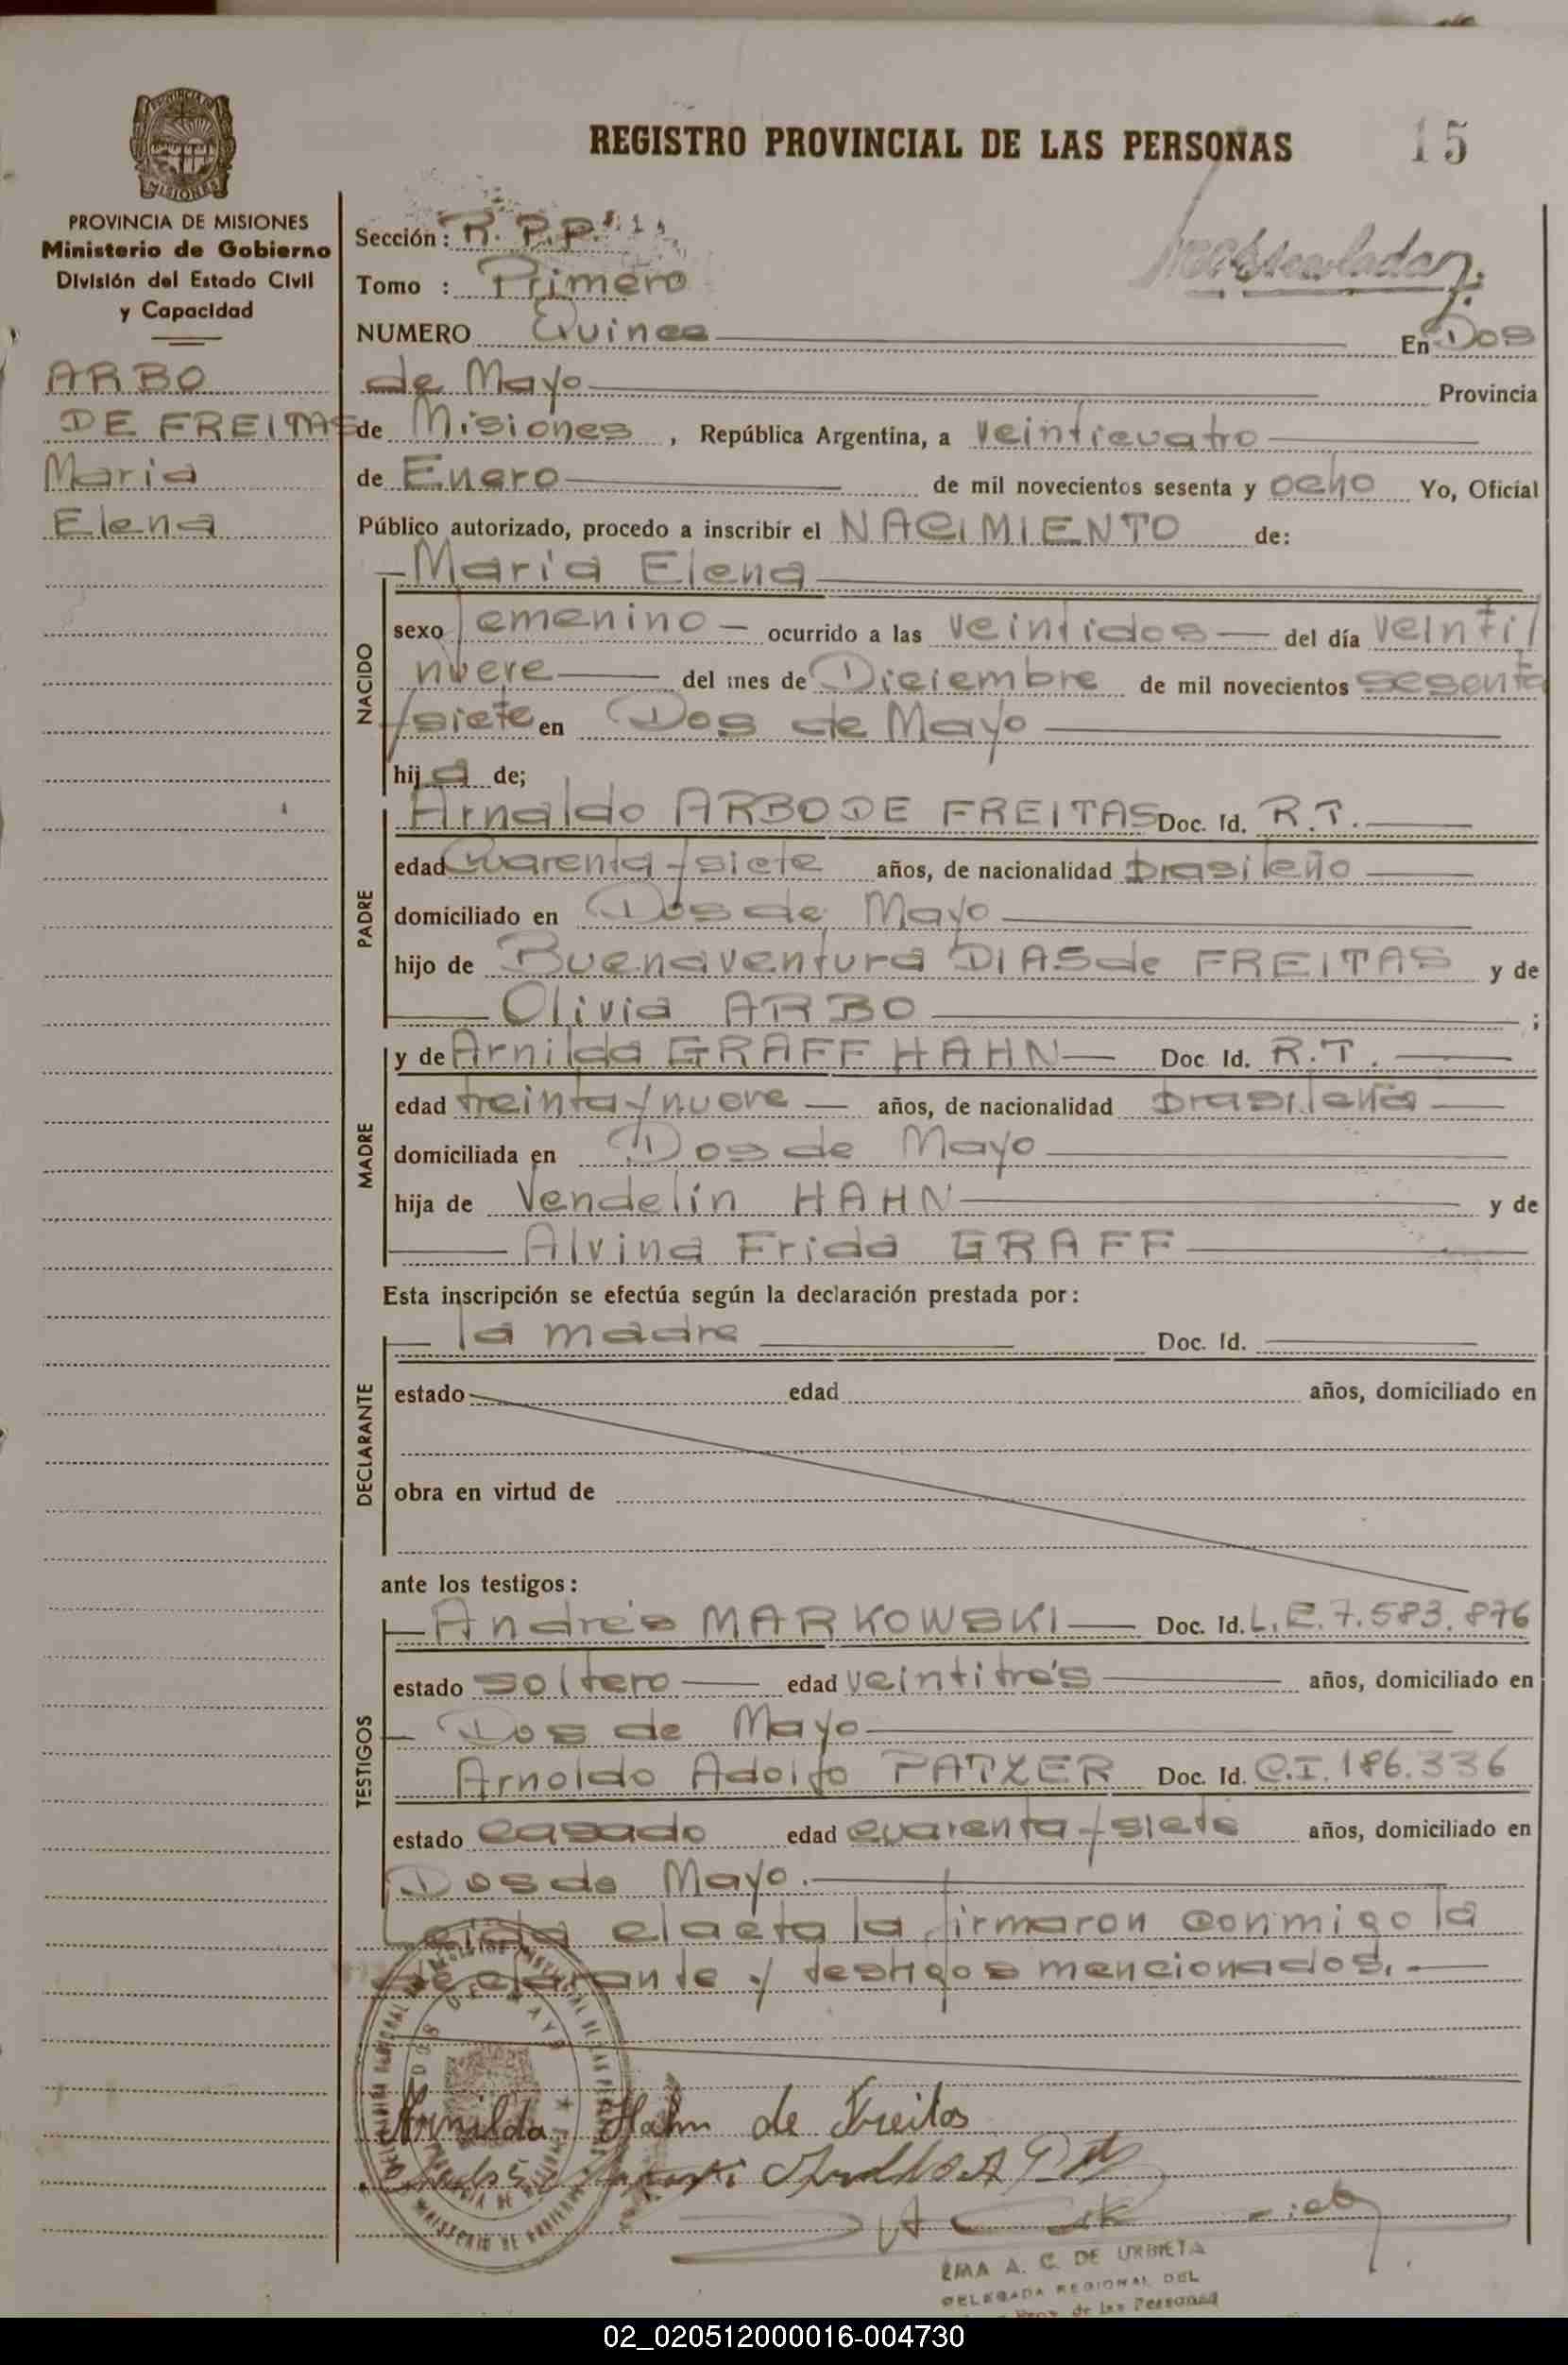 REGISTRO PROVINCIAL DE LAS PERSONAS
15
PROVINCIA DE MISIONES
Ministerio de Gobierno
División del Estado Civil
y Capacidad
ARBO
DE FREITAS
Maria
Elena
Sección: R. P.P.
Tomo : Primero
NUMERO Quince En Dos
de Mayo Provincia
de Misiones, República Argentina, a veinticuatro
de Enero de mil novecientos sesenta y ocho Yo, Oficial
Público autorizado, procedo a inscribir el NACIMIENTO de:
Maria Elena
NACIDO
sexo femenino ocurrido a las veintidos del día veinti
nueve del mes de Diciembre de mil novecientos sesenta
y siete en Dos de Mayo
hija de;
PADRE
Arnaldo ARBO DE FREITAS Doc. Id. R.T.
edad Cuarenta y siete años, de nacionalidad brasileño
domiciliado en Dos de Mayo
hijo de Buenaventura DIAS de FREITAS y de
Olivia ARBO ;
MADRE
y de Arnilda GRAFF HAHN Doc. Id. R.T.
edad treinta y nueve años, de nacionalidad brasileña
domiciliada en Dos de Mayo
hija de Vendelin HAHN y de
Alvina Frida GRAFF
Esta inscripción se efectúa según la declaración prestada por:
DECLARANTE
la madre Doc. Id.
estado edad años, domiciliado en
obra en virtud de
ante los testigos:
TESTIGOS
Andrés MARKOWSKI Doc. Id. L.E.7.583.876
estado soltero edad veintitrés años, domiciliado en
Dos de Mayo
Arnoldo Adolfo PATZER Doc. Id. C.I. 186.336
estado casado edad cuarenta y siete años, domiciliado en
Dos de Mayo.
Leida el acta la firmaron conmigo la
declarante y testigos mencionados.
Arnilda Hahn de Freitas
EMA A. C. DE URBIETA
DELEGADA REGIONAL DEL
Prov. de las Personas
02_020512000016-004730